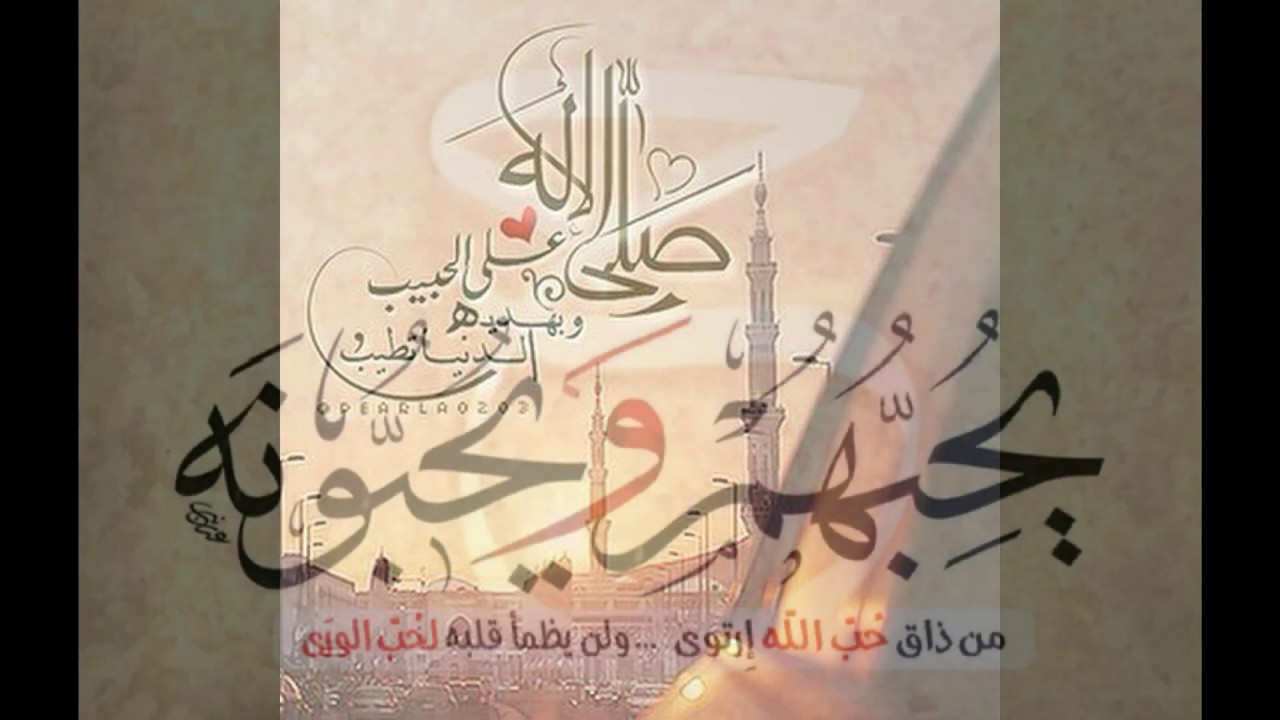 صلى الإله
على الحبيب
وبهديه
الدنيا تطيب
@PEARLA0203
يُحِبُّهُمْ وَيُحِبُّونَهُ
من ذاق حُبّ اللّه إرتوى ... ولن يظمأ قلبه لحُبّ الورَى